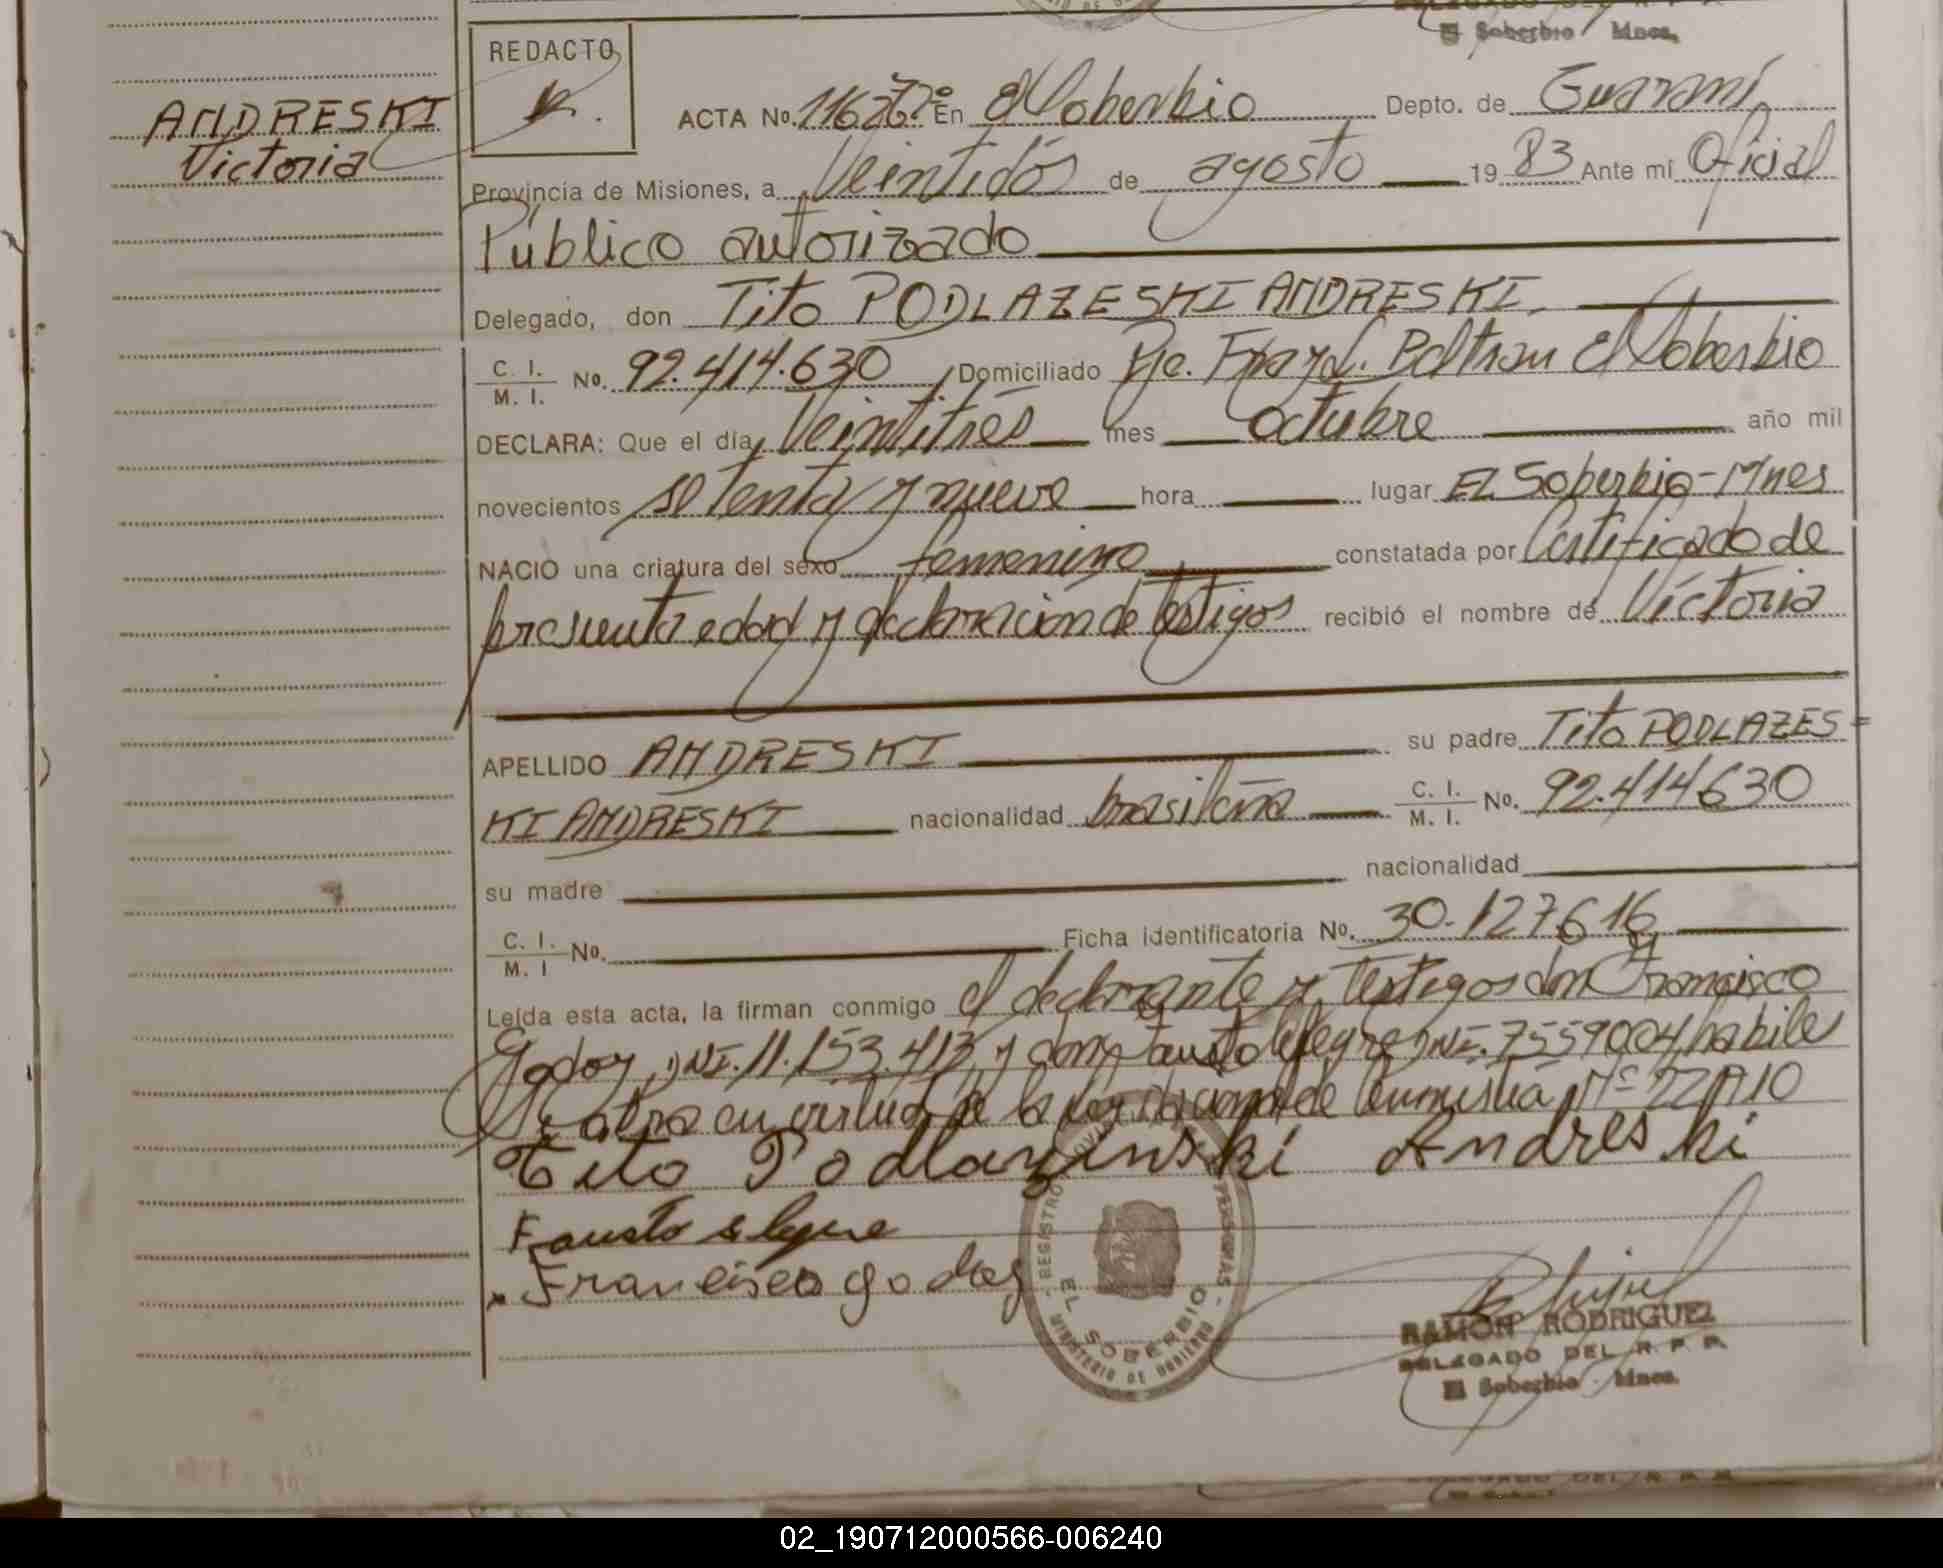 El Soberbio Mnes.
REDACTO
ANDRESKI
Victoria
ACTA No. En El Soberbio Depto. de Guaraní
Provincia de Misiones, a Veintidós de agosto 1983 Ante mí Oficial
Público autorizado
Delegado, don Tito PODLAZESKI ANDRESKI.
C. I. M. I. No. 92.414.630, Domiciliado Pje. Fray L. Beltran El Soberbio
DECLARA: Que el día, Veintitrés mes octubre año mil
novecientos setenta y nueve hora lugar EL Soberbio-Mnes
NACIO una criatura del sexo femenino constatada por Certificado de
presunta edad y declaración de testigos recibió el nombre de Victoria
APELLIDO ANDRESKI su padre Tito PODLAZES=
KI ANDRESKI nacionalidad brasileña C. I. M. I. No. 92.414630
su madre nacionalidad
C. I. M. I No. Ficha identificatoria No. 30.127.616
Leída esta acta, la firman conmigo el declarante y testigos don Francisco
Godoy, DNI. 11.153.413 y don Fausto Alegre DNI. 7559004, habiles
en virtud de la Ley Nacional de Amnistía Nº
Tito Podlazinski Andreski
Fausto alegre
Francisco godoy
REGISTRO PROVINCIAL DE LAS PERSONAS
EL SOBERBIO
MINISTERIO DE GOBIERNO
RAMON RODRIGUEZ
DELEGADO DEL R. P. P.
El Soberbio - Mnes.
02_190712000566-006240